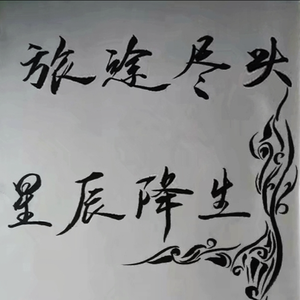 旅途尽头
星辰降生